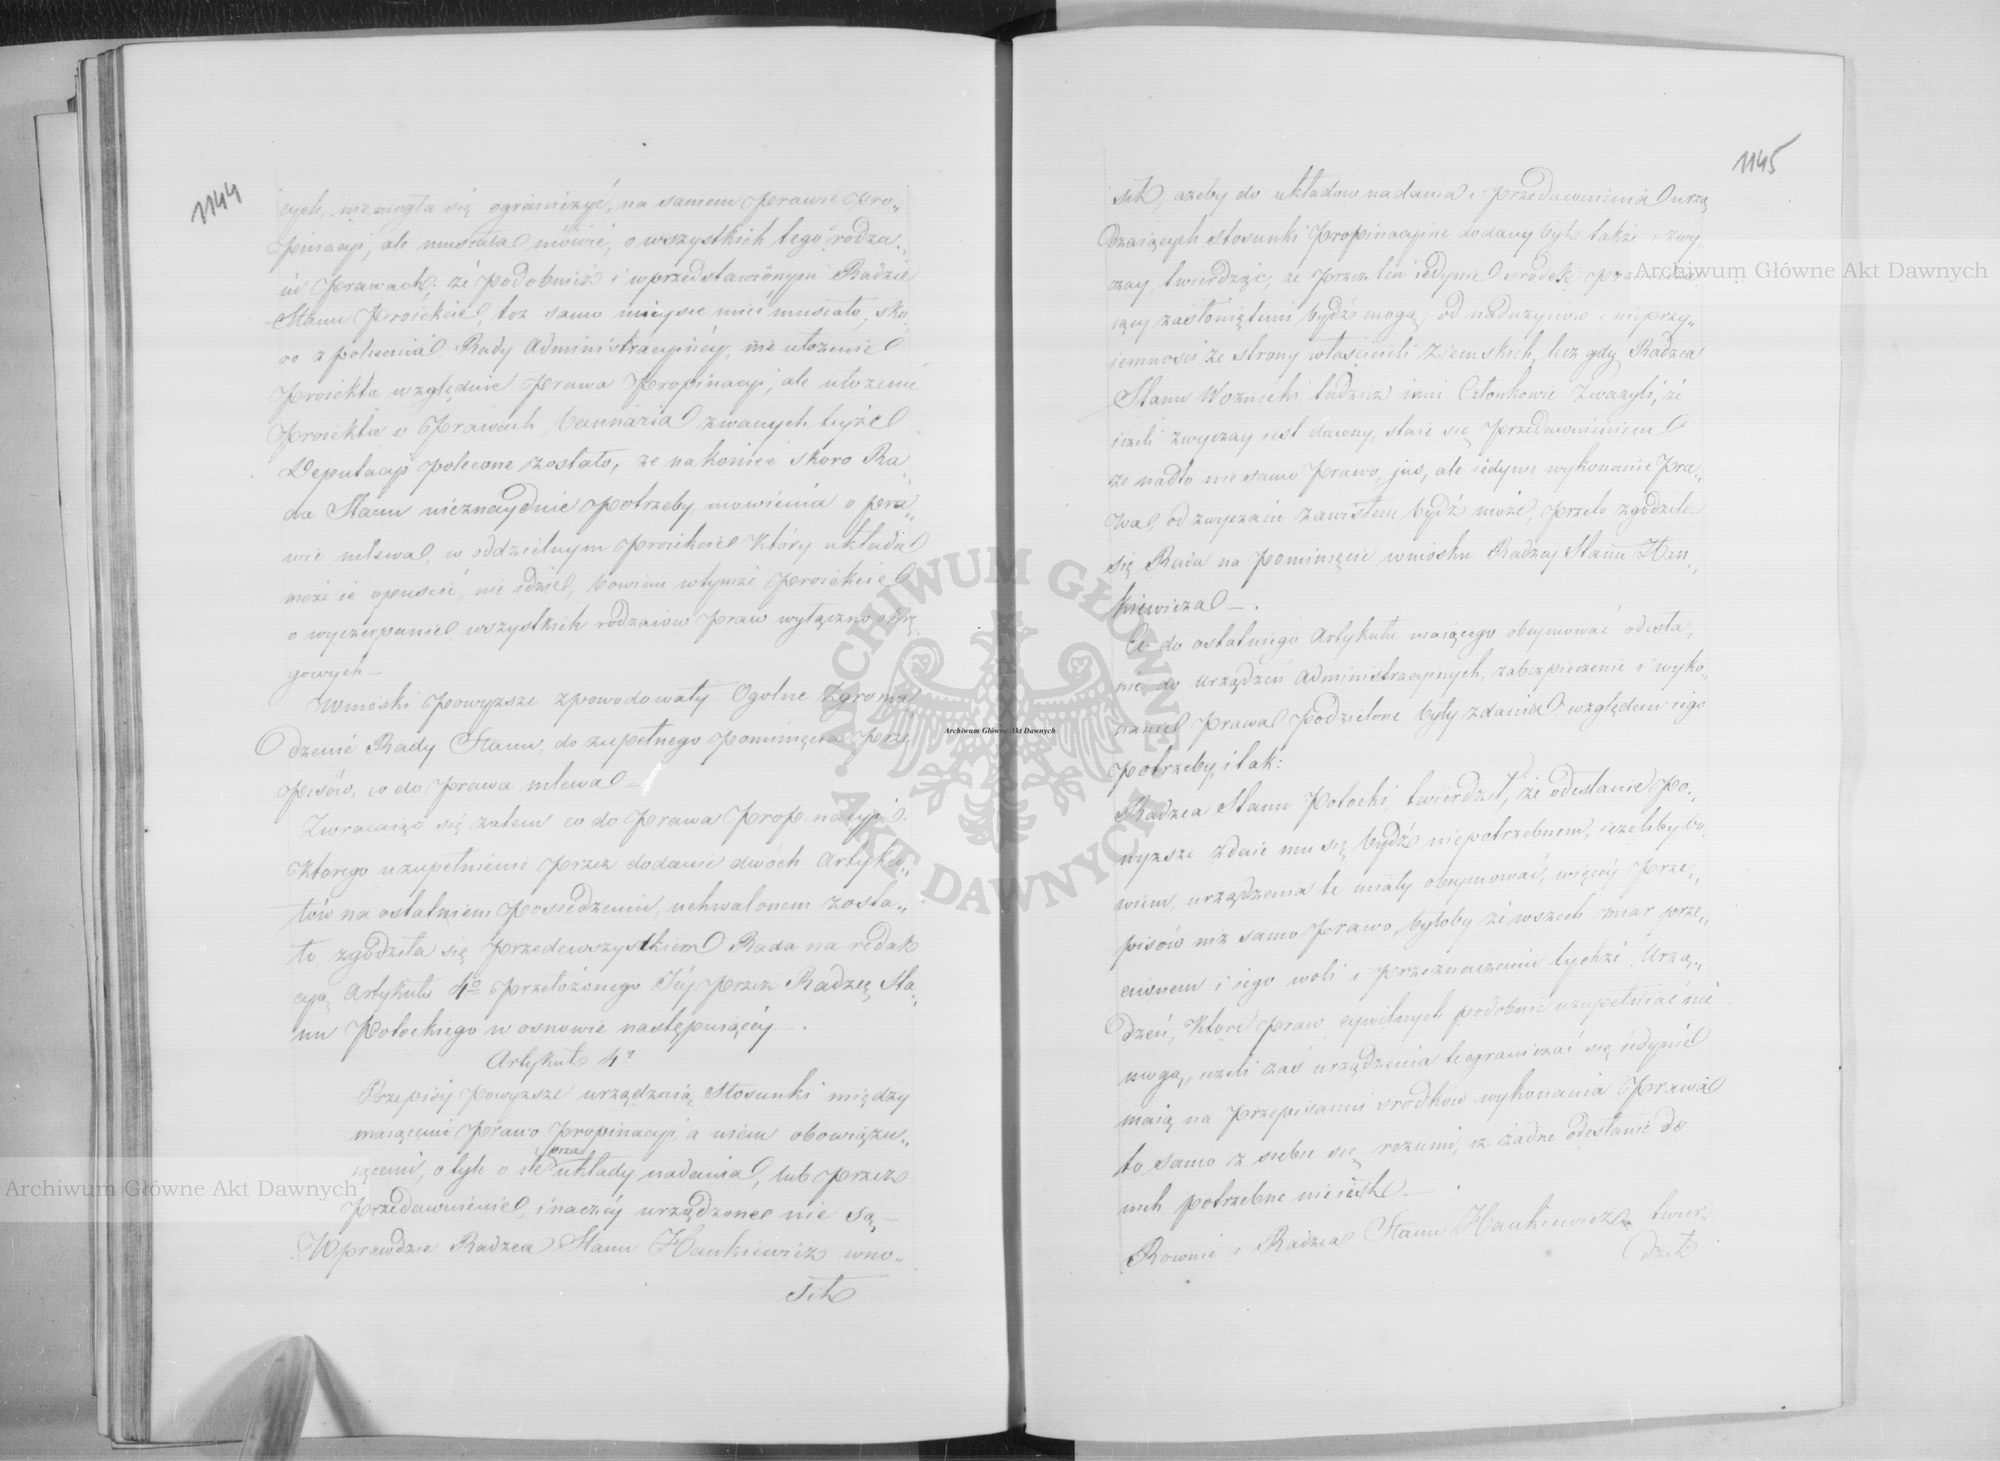 1144
cych, nie mogła się ograniczyć, na samem prawie pro„
pinacyi, ale musiała mówić, o wszystkich tego rodza„
iu prawach. że podobnież i w przedstawionym Radzie
Stanu Proiekcie, toż samo mieysce mieć musiało, sko„
ro z polecenia Rady Administracyinéy, nie ułożenie
Proiektu względnie prawa propinacyi, ale ułożenie
Proiektu o prawach bannaria zwanych teyże
Deputacyi polecone zostało, że nakoniec skoro Ra„
da Stanu nieznayduie potrzeby mowienia o pra„
wie mlewa, w oddzielnym proiekcie który układa
może ie opuscić, nie idzie, bowiem w tymże proiekcie
o wyczerpanie wszystkich rodzaiow praw wyłączno okrę„
gowych —
Wnioski powyższe spowodowały Ogolne Zgroma„
dzenie Rady Stanu, do zupełnego pominięcia prze„
pisów, co do prawa mlewa —
Zwracaiąc się zatem co do prawa Propinacyi.
którego uzupełnienie przez dodanie dwóch Artyku„
łów na ostatniem posiedzeniu, uchwalonem zosta„
ło, zgodziła się przedewszystkiem Rada na redak
cyą Artykułu 4º przełożonego Jéy przez Radzcę Sta„
nu Potockiego w osnowie następuiącéy —.
Artykuł 4º
Przepisy powyższe urządzaią stosunki między
maiącemi prawo propinacyi, a niem obowiązu„
iącemi, o tyle o ile przez układy nadania, lub przez
przedawnienie, inaczéy urządzone nie są, —
Wprawdzie Radzca Stanu Hankiewicz wno„
sił
1145
sił, ażeby do układow nadania i przedawnienia urzą
dzaiących stosunki propinacyine dodany był także i zwy„
czay, twierdząc, że przez ten iedynie srodek
iący zasłoniętemi bydź mogą, od nadużyciow i nieprzy„
iemności ze strony właścicieli ziemskich, lecz gdy Radzca
Stanu Woznicki tudzież inni Członkowie zważyli, że
ieżeli zwyczay iest dawny, staie się przedawnieniem
że nadto nie samo prawo, jus, ale iedynie wykonanie pra„
wa, od zwyczaiu zawisłem bydź może, przeto zgodziła
się Rada na pominięcie wniosku Radzcy Stanu Han„
kiewicza —.
Co do ostatniego Artykułu maiącego obeymować odesła„
nie do urządzeń Administracyinych, zabezpieczenie i wyko„
nanie prawa podzielone były zdania, względem iego
potrzeby, i tak:
Radzca Stanu Potocki, twierdził, że odesłanie po„
wyższe zdaie mu się bydź niepotrzebnem, ieżeliby bo„
wiem, urządzenia te miały obeymować, więcéy prze„
pisów niż samo prawo, byłoby ze wszech miar prze„
ciwnem i iego woli i przeznaczeniu tychże Urzą„
dzeń, które praw cywilnych podobnie uzupełniać nie
mogą, ieżeli zaś urządzenia te ograniczać się iedynie
maią na przepisaniu srodków wykonania prawa
to samo z siebie się rozumi, iż żadne odesłanie do
nich potrzebne nieiest —.
Rownie i Radzca Stanu Hankiewicz twier„
dził
Archiwum Główne Akt Dawnych
Archiwum Główne Akt Dawnych
Archiwum Główne Akt Dawnych
ARCHIWUM GŁÓWNE AKT DAWNYCH